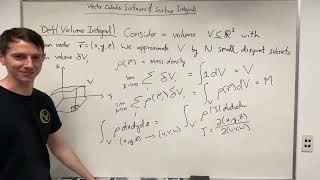 Vector Calculus Surfaces & Surface Integrals
Def (Volume Integral) Consider a volume V⊆ℝ³ with
ion vector r⃗ = (x,y,z). We approximate V by N small, disjoint subsets
volume δVᵢ
ρ(r⃗) = mass density
z V
lim N→∞ Σ δVᵢ = ∫_V 1 dV = V
lim N→∞ Σ ρ(r⃗ᵢ) δVᵢ = ∫_V ρ(r⃗) dV = M
∫_V ρ dx dy dz = ∫_V' ρ |J| du dv dw
(x,y,z) → (u,v,w) J = ∂(x,y,z)/∂(u,v,w)